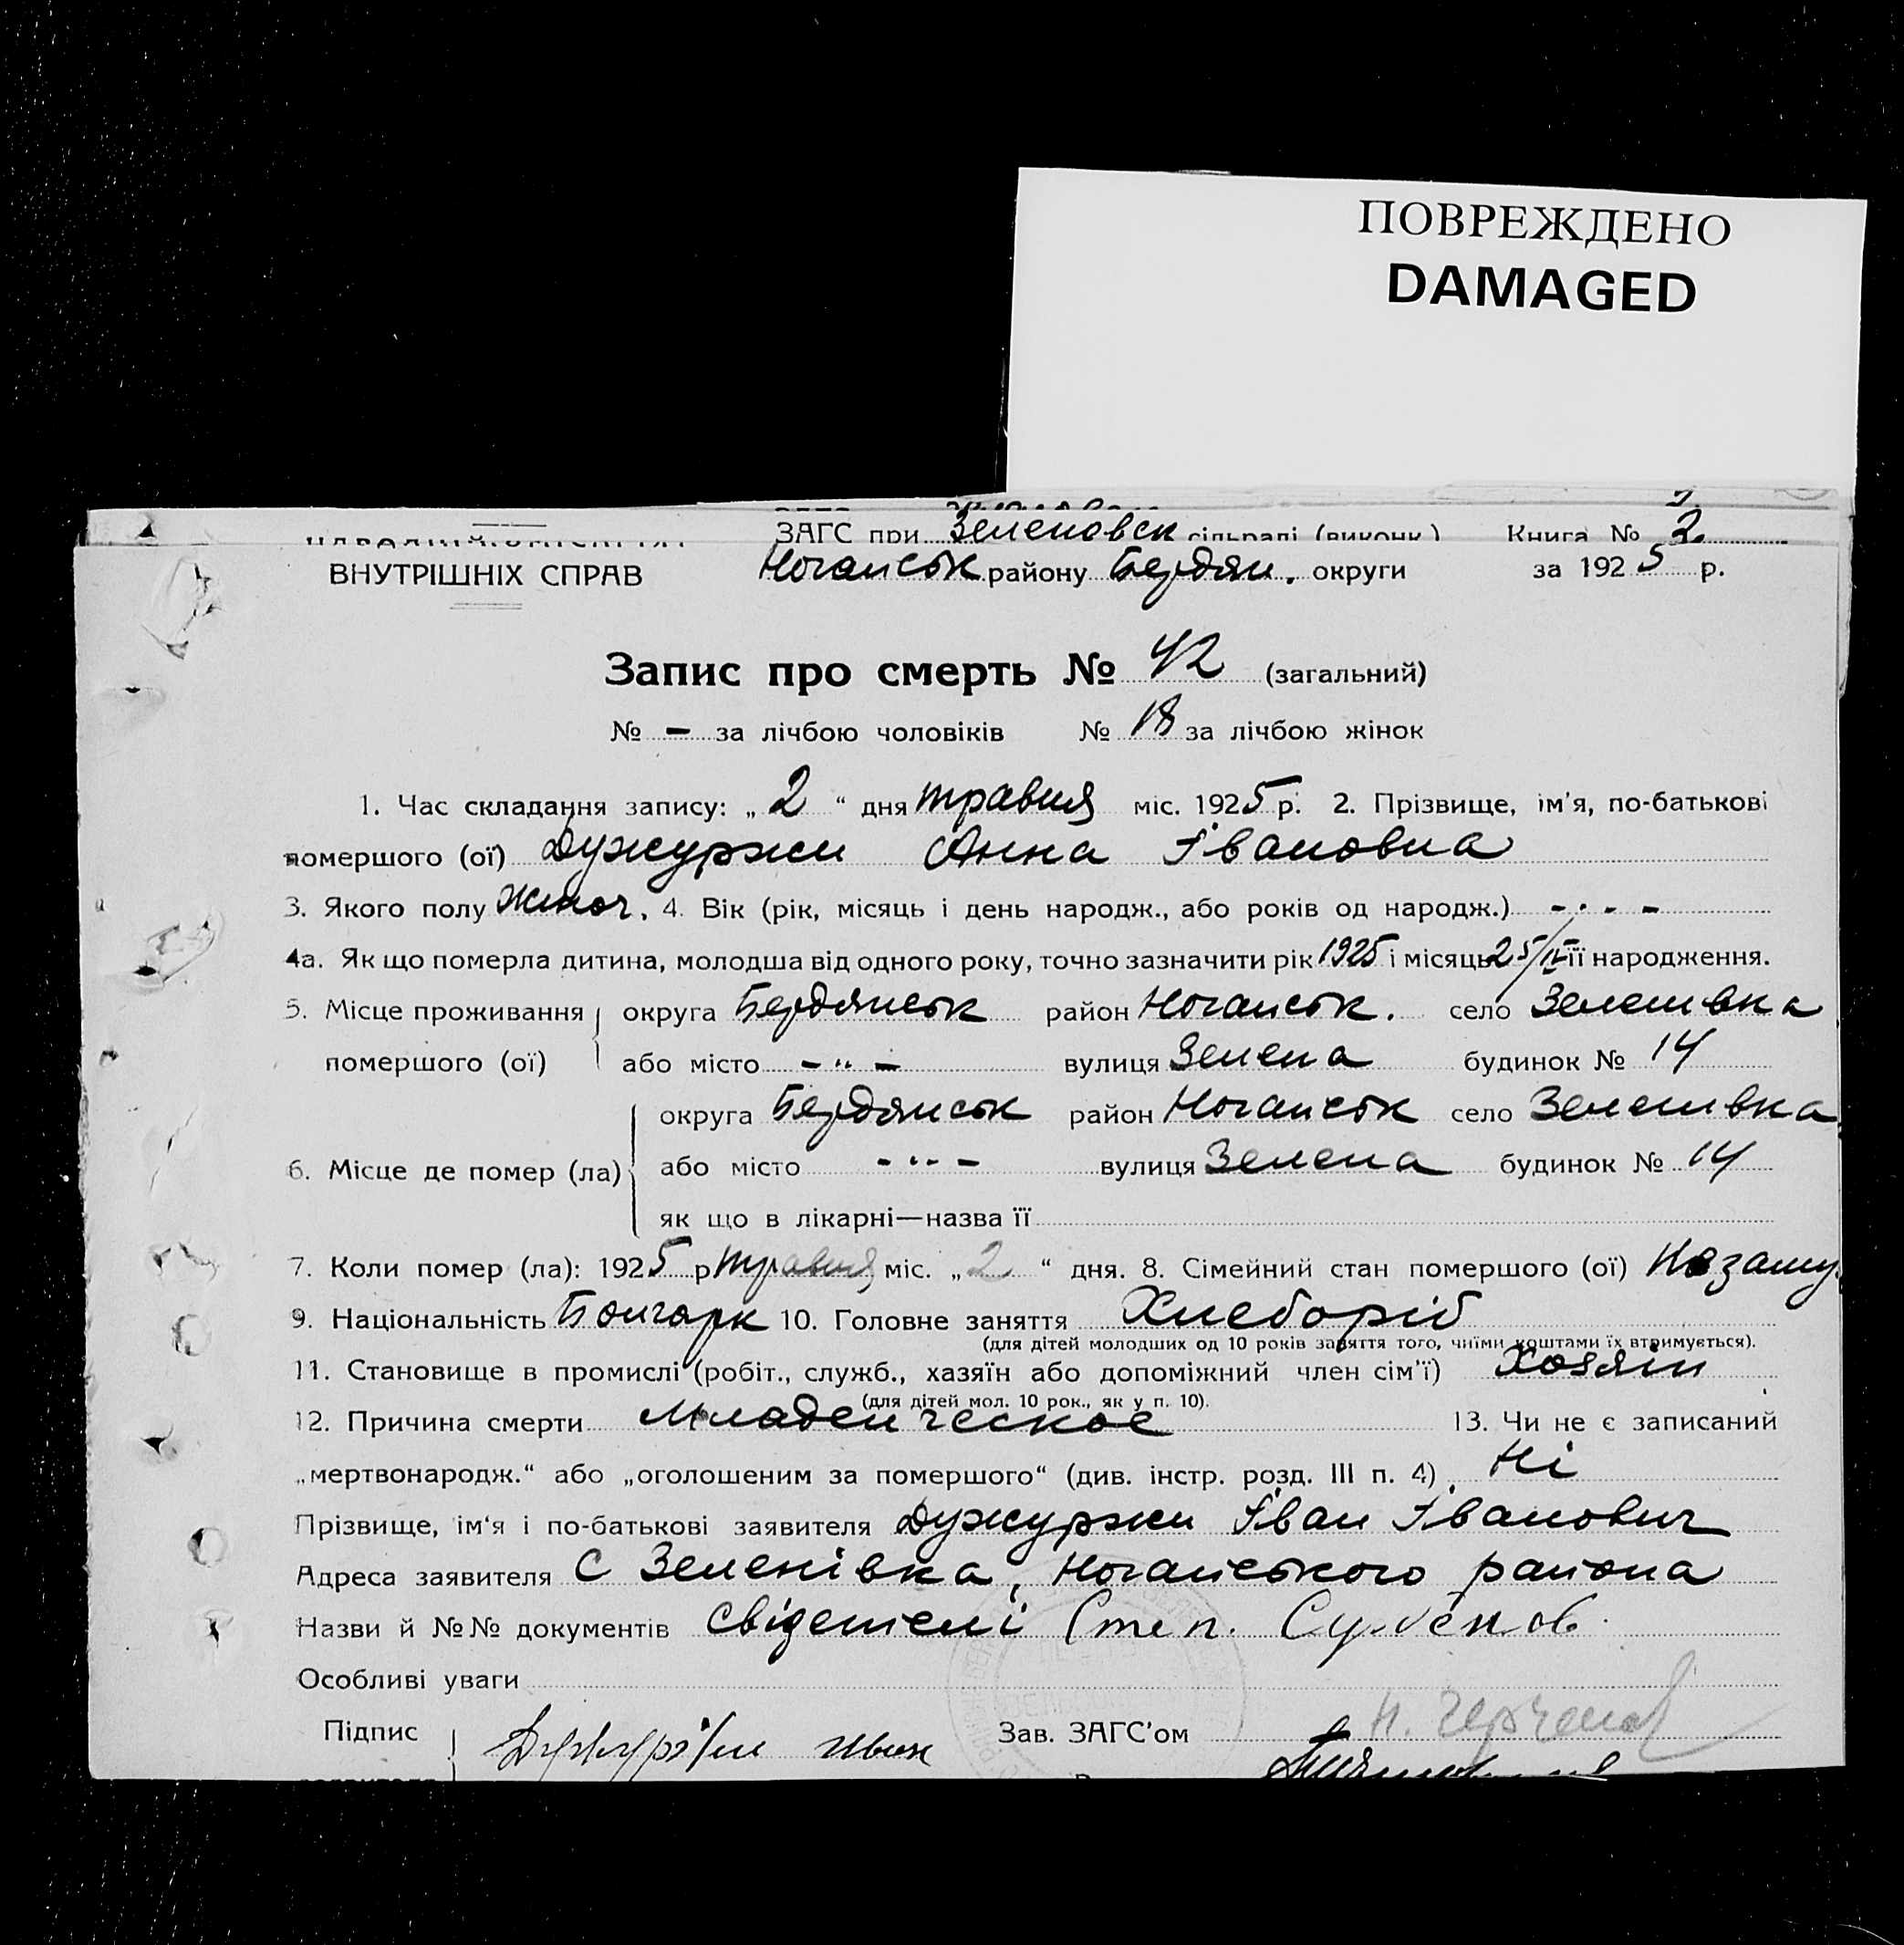 ПОВРЕЖДЕНО
DAMAGED
ЗАГС при Зеленовск сільраді (виконк.) Книга № 2
ВНУТРІШНІХ СПРАВ Ногайськ району Бердян. округи за 1925 р.
Запис про смерть № 42 (загальний)
№ - за лічбою чоловіків № 18 за лічбою жінок
1. Час складання запису: „ 2 “ дня травня міс. 1925 р. 2. Прізвище, ім'я, по-батькові
помершого (ої) Дужуржи Анна Івановна
3. Якого полу жіноч. 4. Вік (рік, місяць і день народж., або років од народж.) - · - -
4а. Як що померла дитина, молодша від одного року, точно зазначити рік 1925 і місяць 25/IV її народження.
5. Місце проживання округа Бердянськ район Ногайськ. село Зеленівка
помершого (ої) або місто - „ - вулиця Зелена будинок № 14
округа Бердянськ район Ногайськ село Зеленівка
6. Місце де помер (ла) або місто - „ - вулиця Зелена будинок № 14
як що в лікарні—назва її
7. Коли помер (ла): 1925 р травня міс. „ 2 “ дня. 8. Сімейний стан помершого (ої) Незаму
9. Національність Болгарк 10. Головне заняття Хлеборіб
(для дітей молодших од 10 років заняття того, чиїми коштами їх втримується).
11. Становище в промислі (робіт., служб., хазяїн або допоміжний член сім'ї) Хозяїн
(для дітей мол. 10 рок., як у п. 10).
12. Причина смерти Младенческое 13. Чи не є записаний
„мертвонародж.“ або „оголошеним за помершого“ (див. інстр. розд. III п. 4) Ні
Прізвище, ім'я і по-батькові заявителя Дужуржи Іван Іванович
Адреса заявителя С Зеленівка, Ногайського района
Назви й №№ документів свідетелі Степ.
Особливі уваги
Підпис Дужуржи Иван Зав. ЗАГС'ом